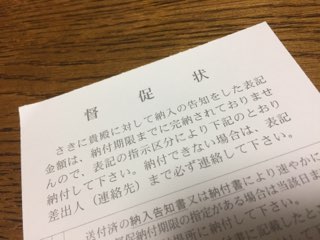 督促状
さきに貴殿に対して納入の告知をした表記
金額は、納付期限までに完納されておりませ
んので、表記の指示区分により下記のとおり
納付して下さい。納付できない場合は、表記
差出人（連絡先）まで必ず連絡して下さい。
送付済の納入告知書又は納付書により速やかに
納付期限の指定がある場合は当該日ま
に納付して下さい。
に記載したと